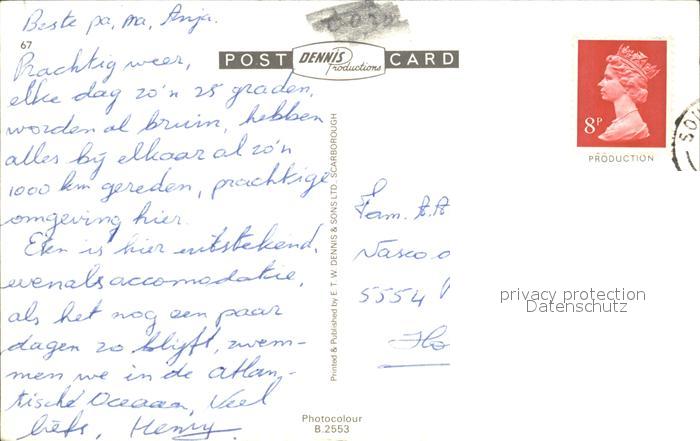 Beste pa, ma, Anja.
67
POST DENNIS Productions CARD
Prachtig weer,
elke dag zo'n 25 graden,
worden al bruin, hebben
alles bij elkaar al zo'n
1000 km gereden, prachtige
omgeving hier.
Eten is hier uitstekend,
evenals accomodatie,
als het nog een paar
dagen zo blijft, zwem-
men we in de atlan-
tische Oceaan, Veel
liefs, Henny.
Printed & Published by E. T. W. DENNIS & SONS LTD., SCARBOROUGH
Photocolour
B.2553
8P
PRODUCTION
Fam. A.A
Nasco o
5554
Ho
privacy protection
Datenschutz